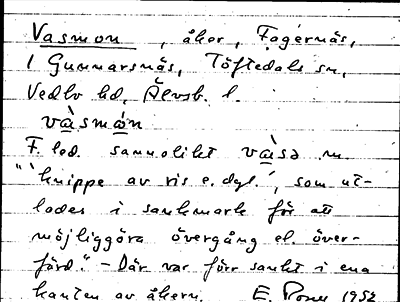 Vasmon , åker, Fagernäs,
1 Gunnarsnäs, Töftedals sn,
Vedbo hd, Älvsb. l.
vàsmán
F. led. sannolikt vàsə m.
"'knippe av ris e. dyl.', som ut-
lades i sankmark för att
möjliggöra övergång el. över-
färd." – Där var förr sankt i ena
kanten av åkern. E. 1952